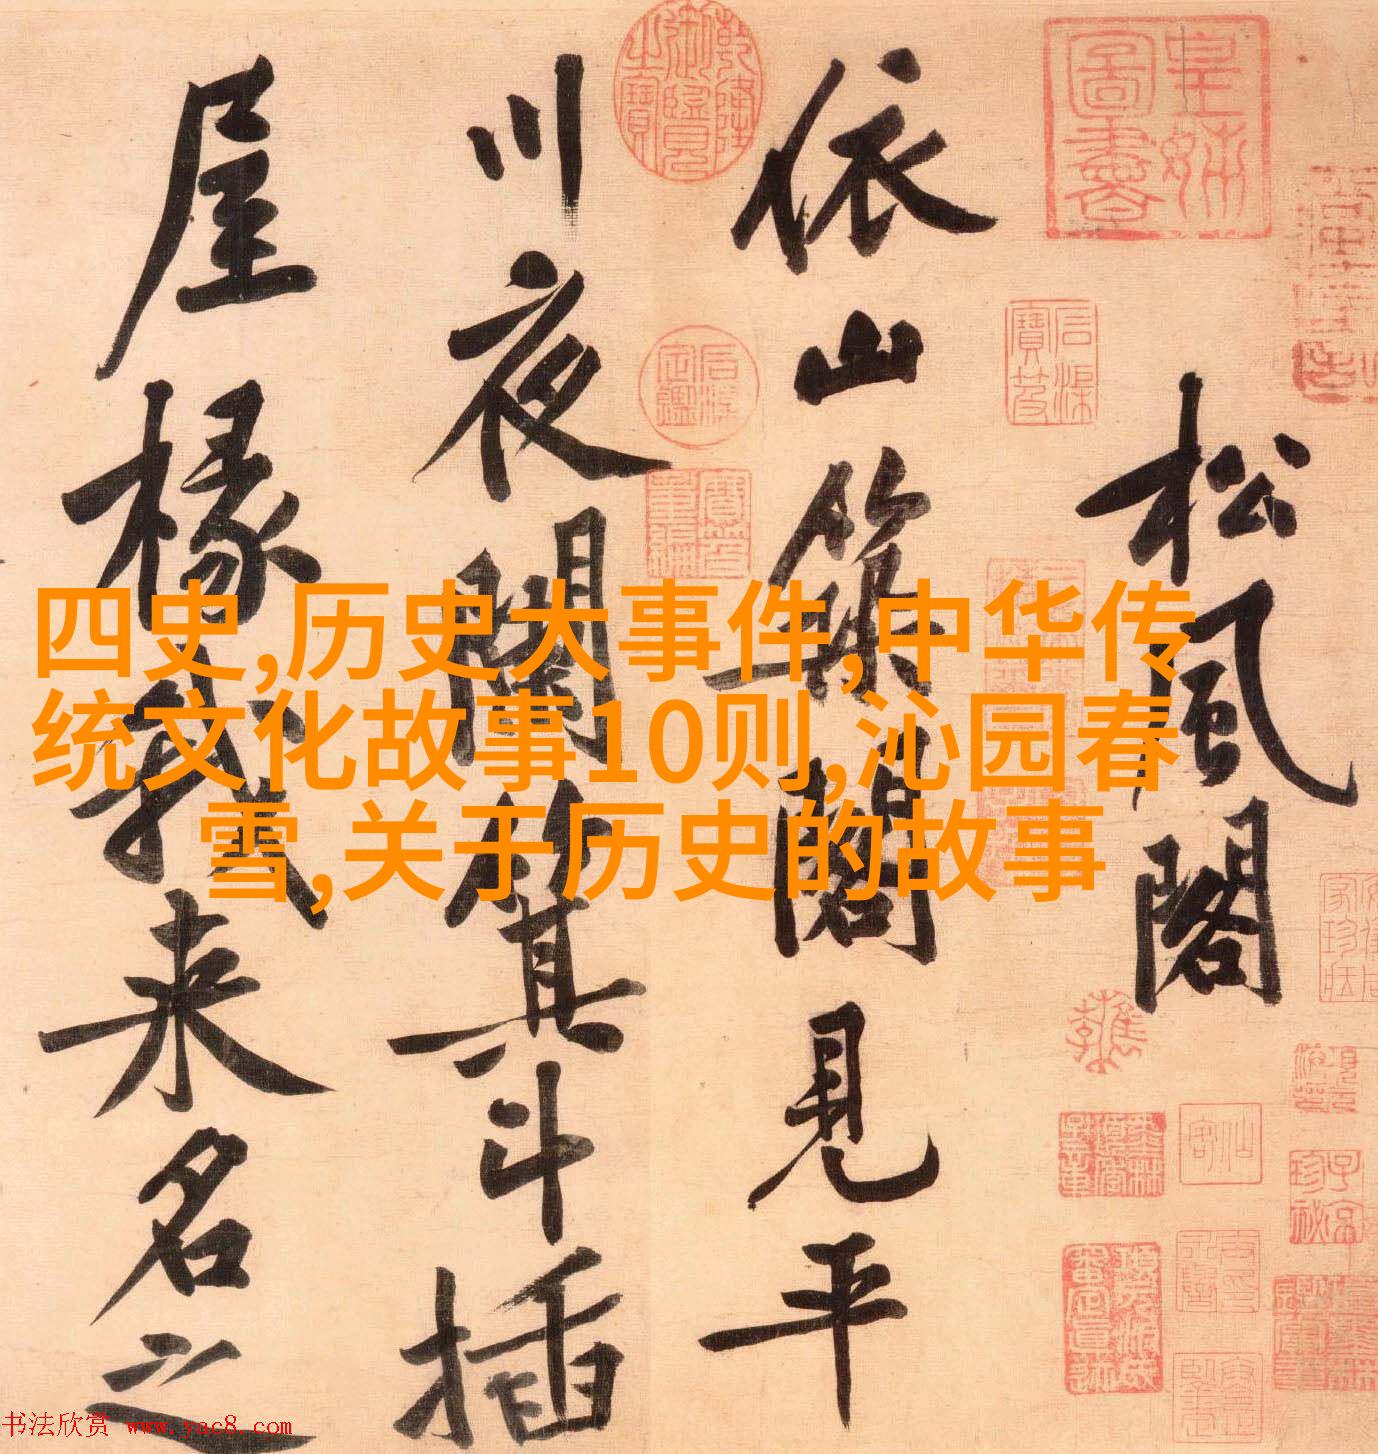 松風閣
依山築閣見平
川夜闌箕斗插
屋椽我来名之
四史,历史大事件,中华传
统文化故事10则,沁园春
雪,关于历史的故事
书法欣赏 www.yac8.com